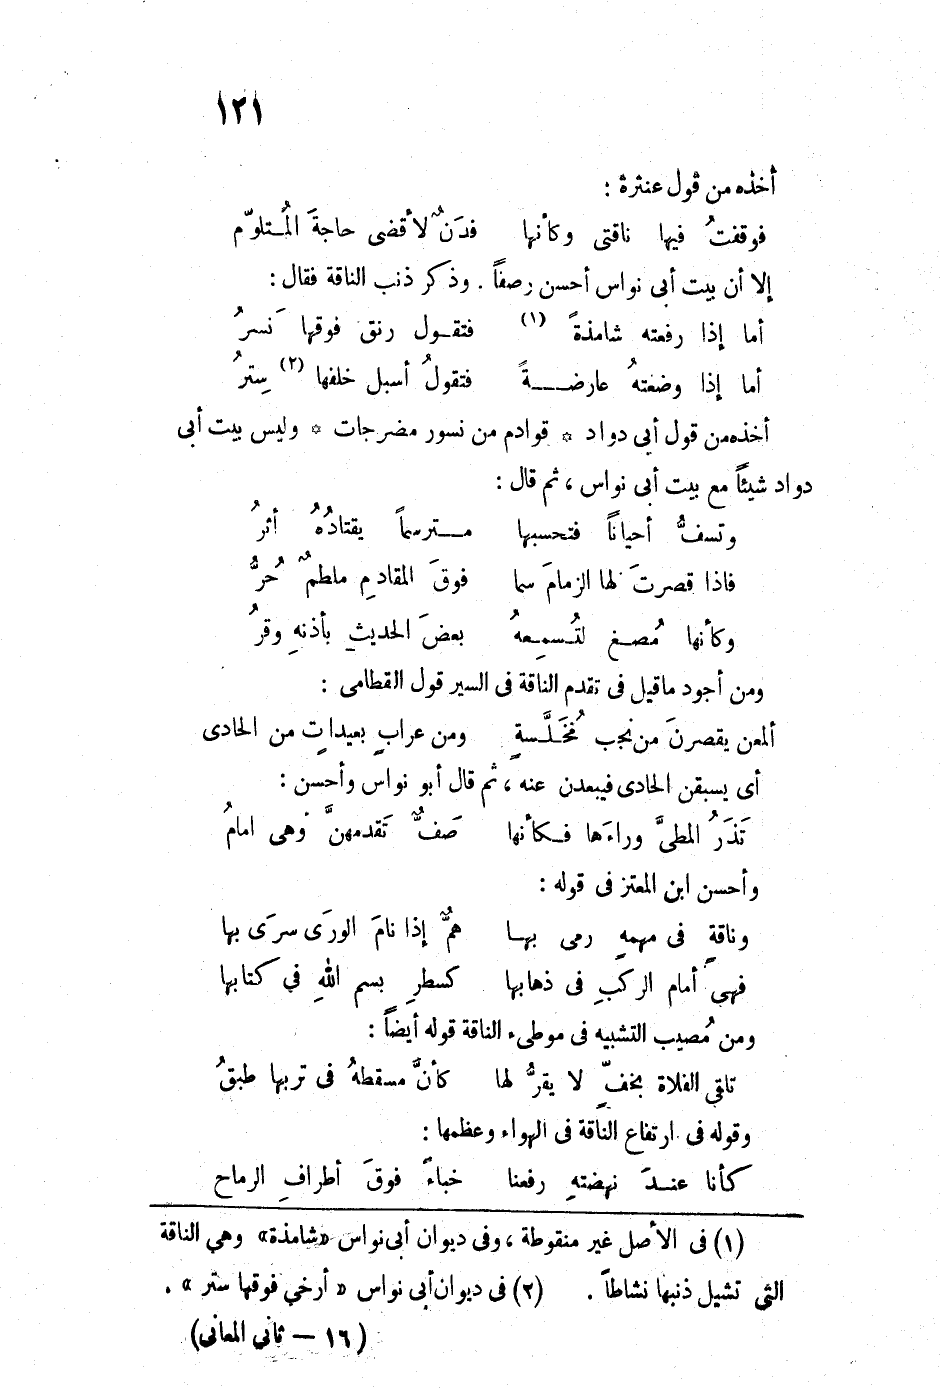 ١٢١
أخذه من قول عنترة :
فوقفتُ فيها ناقتى وكأنها فدَنٌ لأقضى حاجةَ المُتلوّم
إلا أن بيت أبى نواس أحسن رصفاً . وذكر ذنب الناقة فقال :
أما إذا رفعته شامذةً (١) فتقول رنق فوقها نَسرُ
أما إذا وضعتهُ عارضةً فتقولُ أسبل خلفها (٢) سِترُ
أخذه من قول أبي دواد * قوادم من نسور مضرجات * وليس بيت أبى
دواد شيئاً مع بيت أبى نواس ، ثم قال :
وتسفُّ أحياناً فتحسبها مترسماً يقتادُهُ أثرُ
فاذا قصرتَ لها الزمامَ سما فوقَ المقادمِ ملطمٌ حُرُّ
وكأنها مُصغ لتُسمِعهُ بعضَ الحديثِ بأذنهِ وقرُ
ومن أجود ماقيل فى تقدم الناقة فى السير قول القطامى :
ألمعن يقصرنَ من نجب مُخَلَّسةٍ ومن عرابٍ بعيداتٍ من الحادى
أى يسبقن الحادى فيبعدن عنه ، ثم قال أبو نواس وأحسن :
تَذَرُ المطىَّ وراءَها فكأنها صَفٌّ تَقدمهنَّ وهى امامُ
وأحسن ابن المعتز فى قوله :
وناقةٍ فى مهمهٍ رمى بها همٌّ إذا نامَ الورَى سرَى بها
فهىَ أمام الركبِ فى ذهابها كسطرِ بسم اللّٰهِ في كتابها
ومن مُصيب التشبيه فى موطىء الناقة قوله أيضاً :
تلقى الفلاة بخفٍّ لا يقرُّ لها كأنَّ مسقطهُ فى تربها طبقُ
وقوله فى ارتفاع الناقة فى الهواء وعظمها :
كأنا عندَ نهضتهِ رفعنا خباءً فوقَ أطرافِ الرماح
(١) فى الأصل غير منقوطة ، وفى ديوان أبى نواس «شامذة» وهي الناقة
التي تشيل ذنبها نشاطاً . (٢) فى ديوان أبى نواس « أرخي فوقها ستر » .
(١٦ — ثاني المعانى)